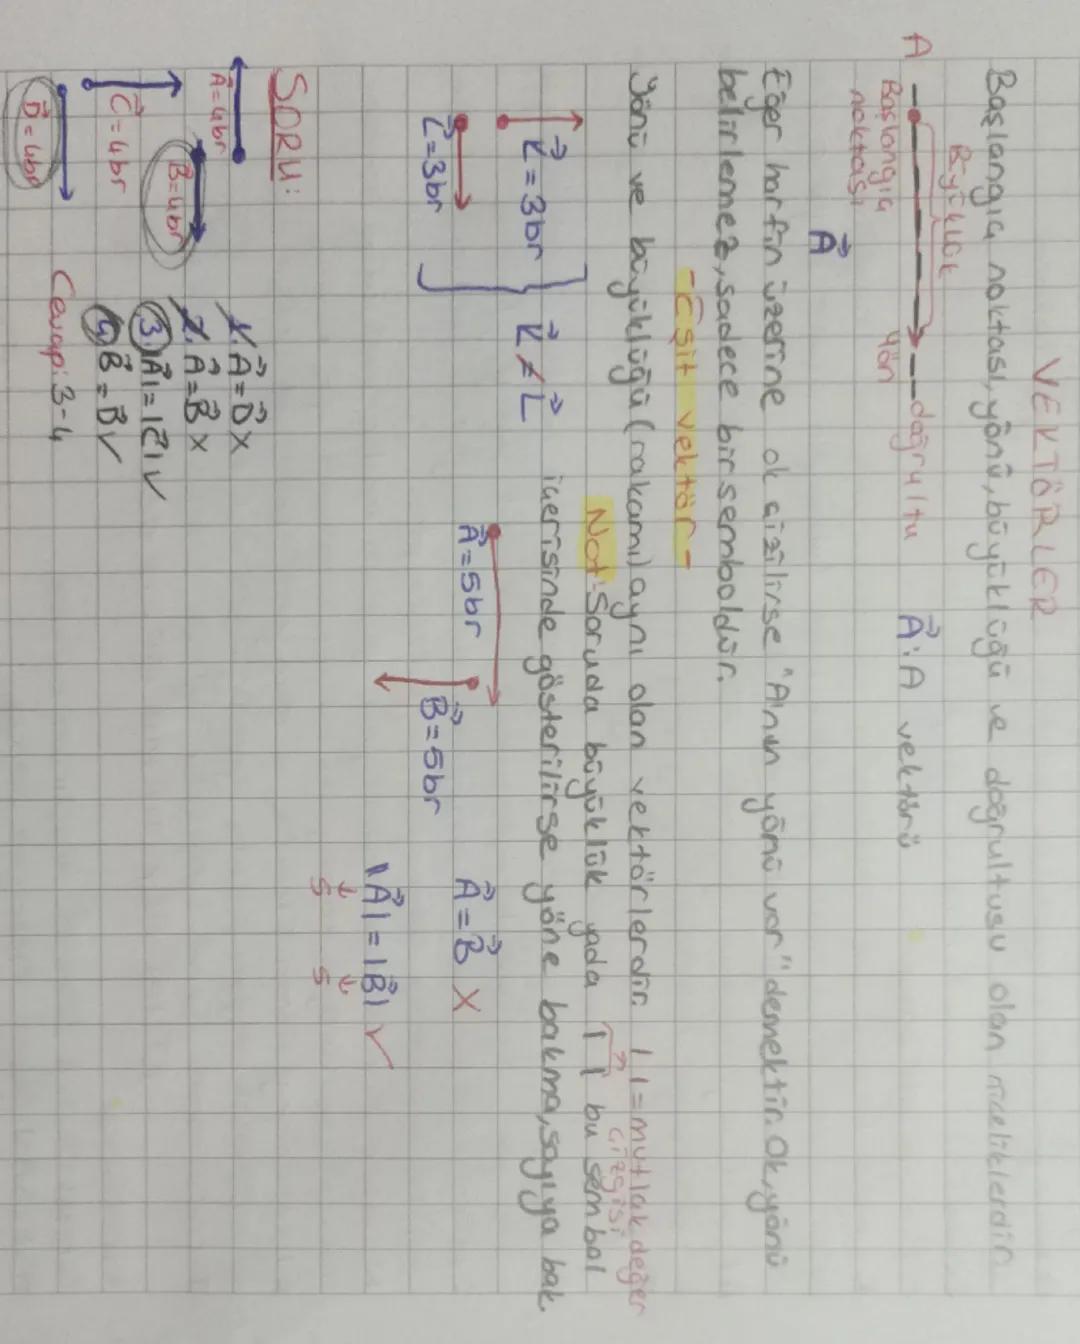 VEKTÖRLER
Başlangıç noktası, yönü, büyüklüğü ve doğrultusu olan niceliklerdir.
Büyüklük
A
Yön
doğrultu
A⃗: A vektörü
Başlangıç
noktası
A⃗
Eğer harfin üzerine ok çizilirse "A'nın yönü var" demektir. Ok, yönü
belirlemez, sadece bir semboldür.
-Eşit vektör-
Yönü ve büyüklüğü (rakamı) aynı olan vektörlerdir. | | = mutlak değer
çizgisi
Not: Soruda büyüklük yada | | bu sembol
içerisinde gösterilirse yöne bakma, sayıya bak
K⃗ = 3br
L⃗ = 3br
K⃗ ≠ L⃗
A⃗ = 5br
B⃗ = 5br
A⃗ = B⃗ X
|A⃗| = |B⃗| ✓
5 5
SORU:
A⃗ = 4br
B⃗ = 4br
C⃗ = 4br
D⃗ = 4br
1. A⃗ = D⃗ X
2. A⃗ = B⃗ X
3. |A⃗| = |C⃗| ✓
4. B⃗ = D⃗ ✓
Cevap: 3-4